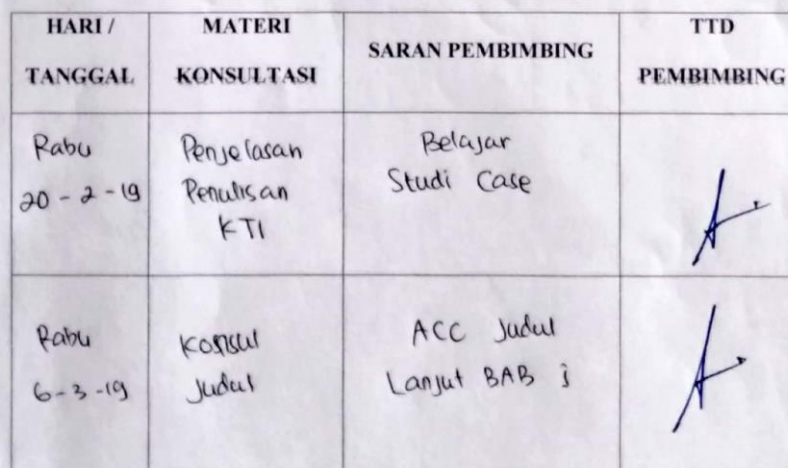 HARI /
TANGGAL
MATERI
KONSULTASI
SARAN PEMBIMBING
TTD
PEMBIMBING
Rabu
20 - 2 - 19
Penjelasan
Penulisan
KTI
Belajar
Studi Case
Rabu
6 - 3 - 19
Konsul
Judul
ACC Judul
Lanjut BAB i